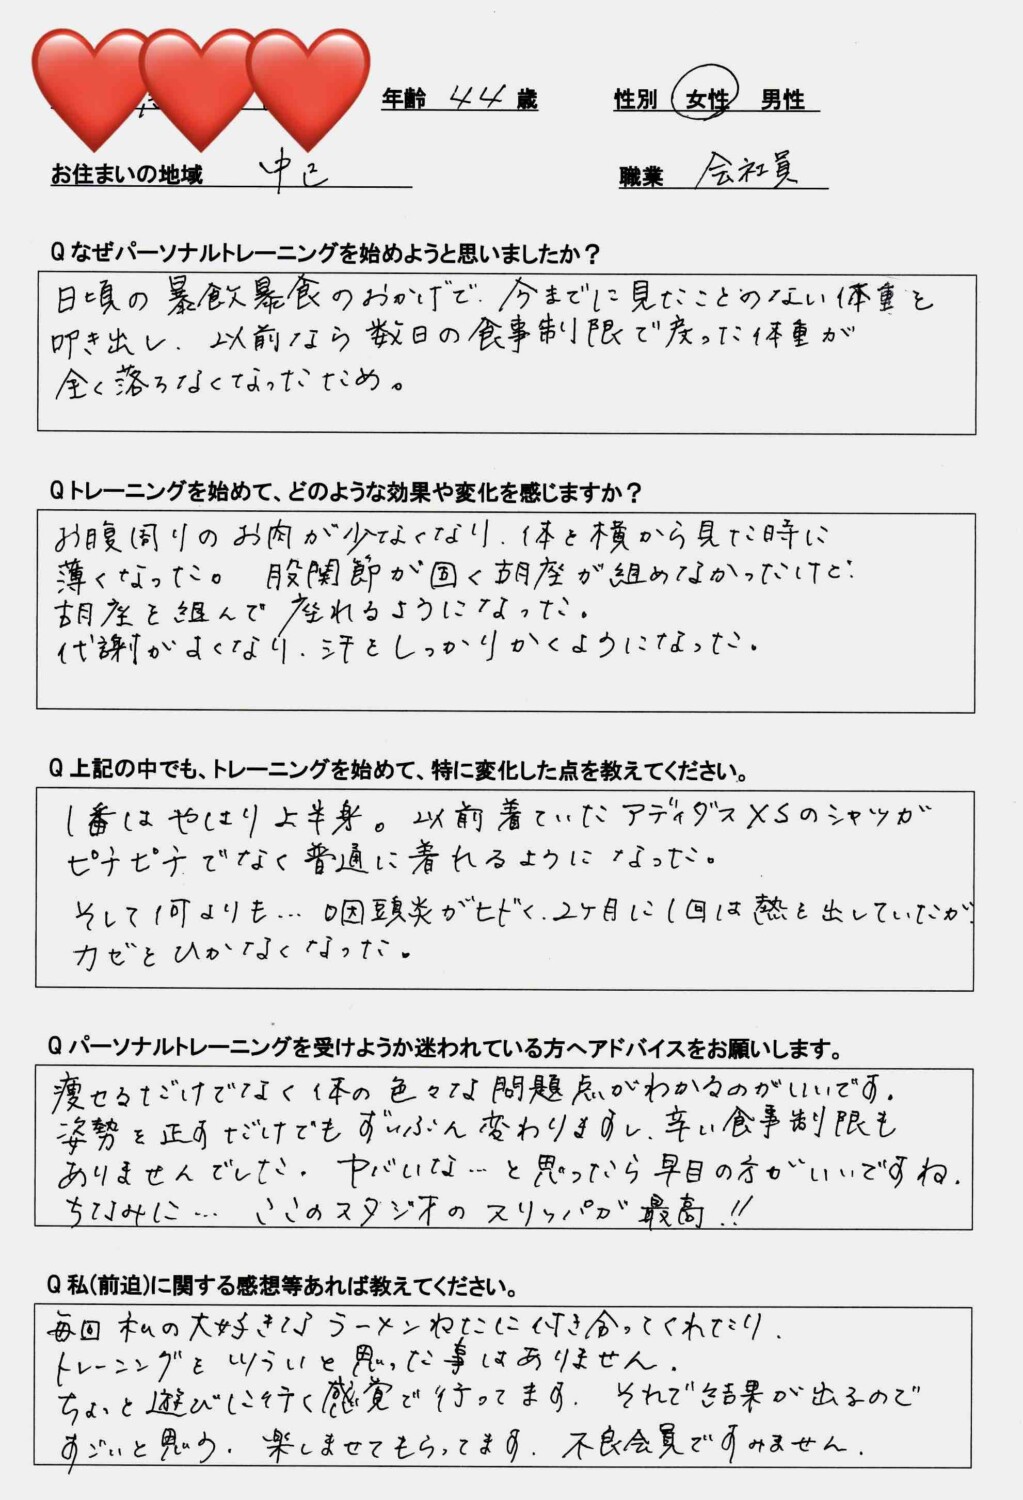 年齢 44 歳 性別 女性 男性
お住まいの地域 中区 職業 会社員
Q なぜパーソナルトレーニングを始めようと思いましたか？
日頃の暴飲暴食のおかげで、今までに見たことのない体重を
叩き出し、以前なら数日の食事制限で戻った体重が
全く落ちなくなったため。
Q トレーニングを始めて、どのような効果や変化を感じますか？
お腹周りのお肉が少なくなり、体を横から見た時に
薄くなった。 股関節が固く胡座が組めなかったけど、
胡座を組んで座れるようになった。
代謝がよくなり、汗をしっかりかくようになった。
Q 上記の中でも、トレーニングを始めて、特に変化した点を教えてください。
1番はやはり上半身。以前着ていたアディダスXSのシャツが
ピチピチでなく普通に着れるようになった。
そして何よりも…咽頭炎がヒドく、2ヶ月に1回は熱を出していたが、
カゼをひかなくなった。
Q パーソナルトレーニングを受けようか迷われている方へアドバイスをお願いします。
痩せるだけでなく体の色々な問題点がわかるのがいいです。
姿勢を正すだけでもずいぶん変わりますし、辛い食事制限も
ありませんでした。ヤバいな…と思ったら早目の方がいいですね。
ちなみに… ここのスタジオのスリッパが最高!!
Q 私(前迫)に関する感想等あれば教えてください。
毎回私の大好きなラーメンねたに付き合ってくれたり、
トレーニングをツラいと思った事はありません。
ちょっと遊びに行く感覚で行ってます。それで結果が出るので
すごいと思う。楽しませてもらってます。不良会員ですみません。